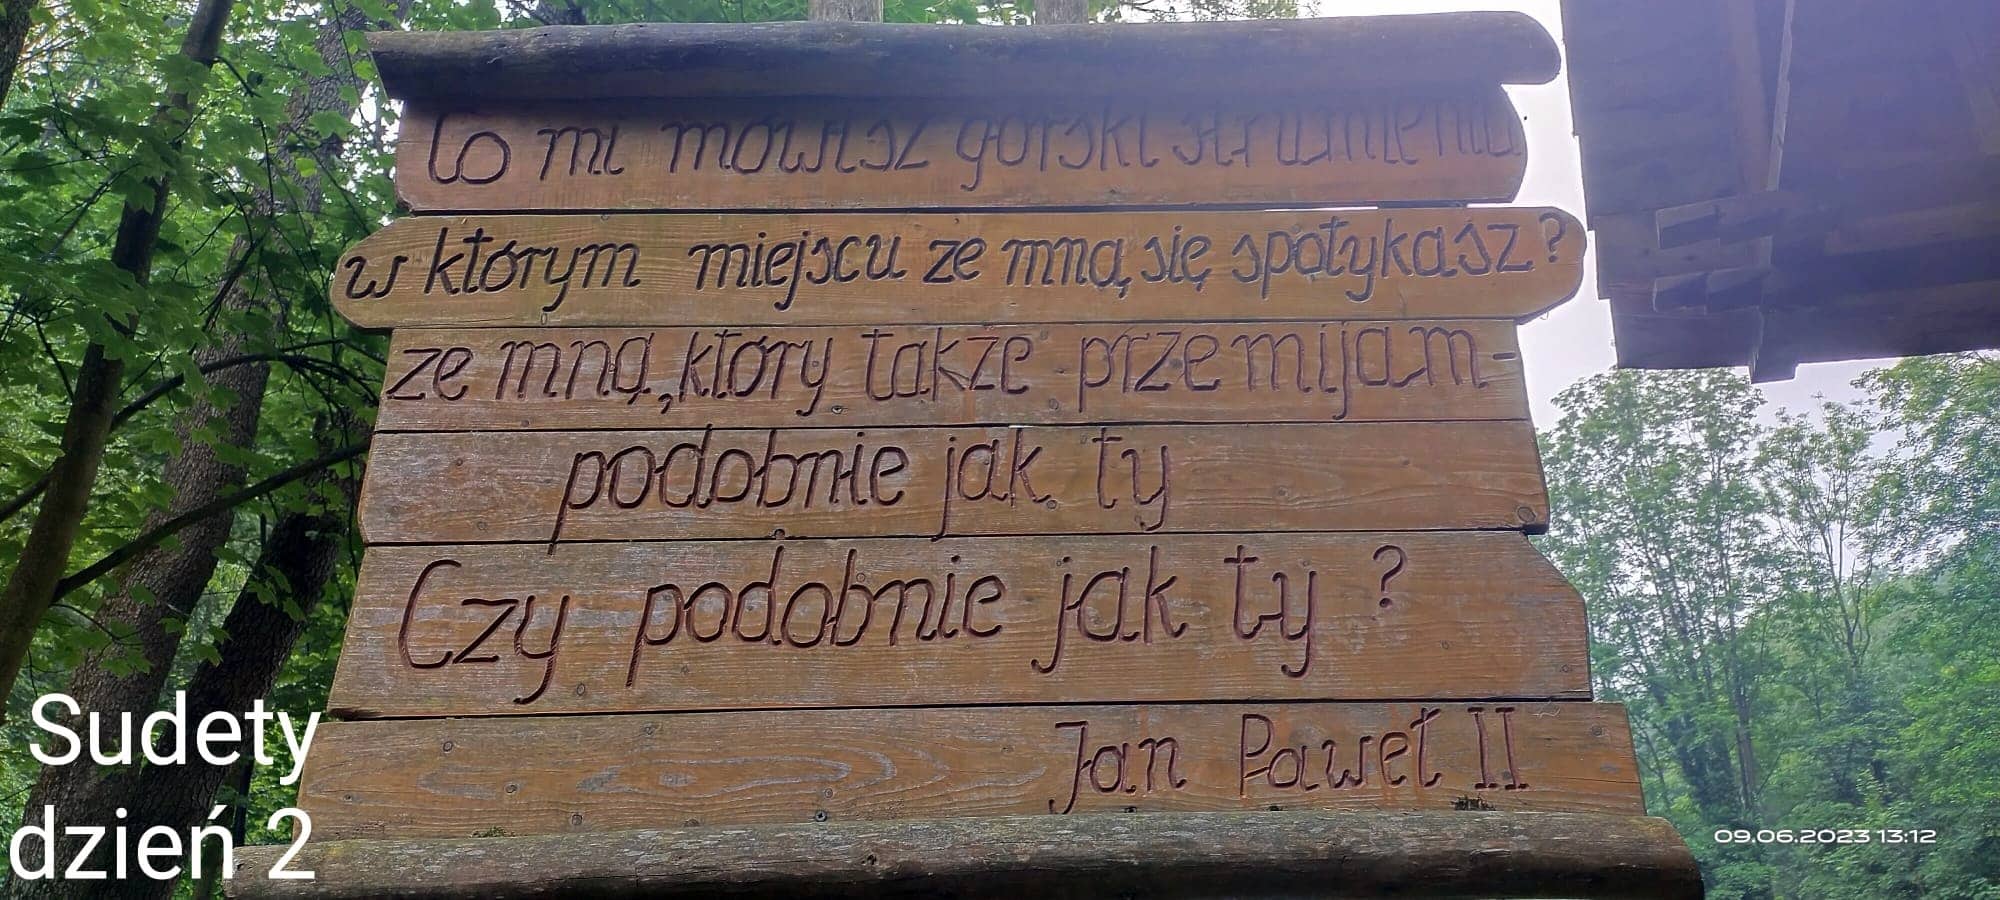 Co mi mówisz górski strumieniu
w którym miejscu ze mną się spotykasz?
ze mną, który także przemijam-
podobnie jak ty
Czy podobnie jak ty ?
Jan Paweł II
Sudety
dzień 2
09.06.2023 13:12